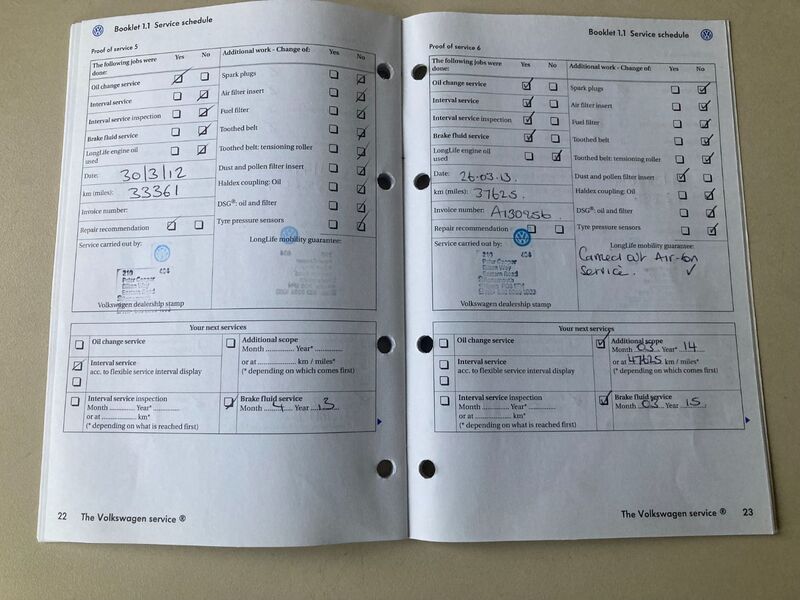 Booklet 1.1 Service schedule
Proof of service 5
The following jobs were done: Yes No
Oil change service
Interval service
Interval service inspection
Brake fluid service
LongLife engine oil used
Date: 30/3/12
km (miles): 33361
Invoice number:
Repair recommendation
Service carried out by:
210 404
Peter Cooper
Volkswagen dealership stamp
Additional work - Change of: Yes No
Spark plugs
Air filter insert
Fuel filter
Toothed belt
Toothed belt: tensioning roller
Dust and pollen filter insert
Haldex coupling: Oil
DSG®: oil and filter
Tyre pressure sensors
LongLife mobility guarantee:
Your next services
Oil change service
Interval service
acc. to flexible service interval display
Interval service inspection
Month ............ Year* ..................
or at .................... km*
(* depending on what is reached first)
Additional scope
Month ............ Year* ..................
or at .................... km / miles*
(* depending on which comes first)
Brake fluid service
Month 4 Year 13
22 The Volkswagen service ®
Booklet 1.1 Service schedule
Proof of service 6
The following jobs were done: Yes No
Oil change service
Interval service
Interval service inspection
Brake fluid service
LongLife engine oil used
Date: 26.03.13.
km (miles): 37625.
Invoice number: A130956.
Repair recommendation
Service carried out by:
210 404
Peter Cooper
Volkswagen dealership stamp
Additional work - Change of: Yes No
Spark plugs
Air filter insert
Fuel filter
Toothed belt
Toothed belt: tensioning roller
Dust and pollen filter insert
Haldex coupling: Oil
DSG®: oil and filter
Tyre pressure sensors
LongLife mobility guarantee:
Carried out Air-con
Service. ✓
Your next services
Oil change service
Interval service
acc. to flexible service interval display
Interval service inspection
Month ............ Year* ..................
or at .................... km*
(* depending on what is reached first)
Additional scope
Month 03 Year* 14
or at 47625 km / miles*
(* depending on which comes first)
Brake fluid service
Month 03 Year 15
The Volkswagen service ® 23